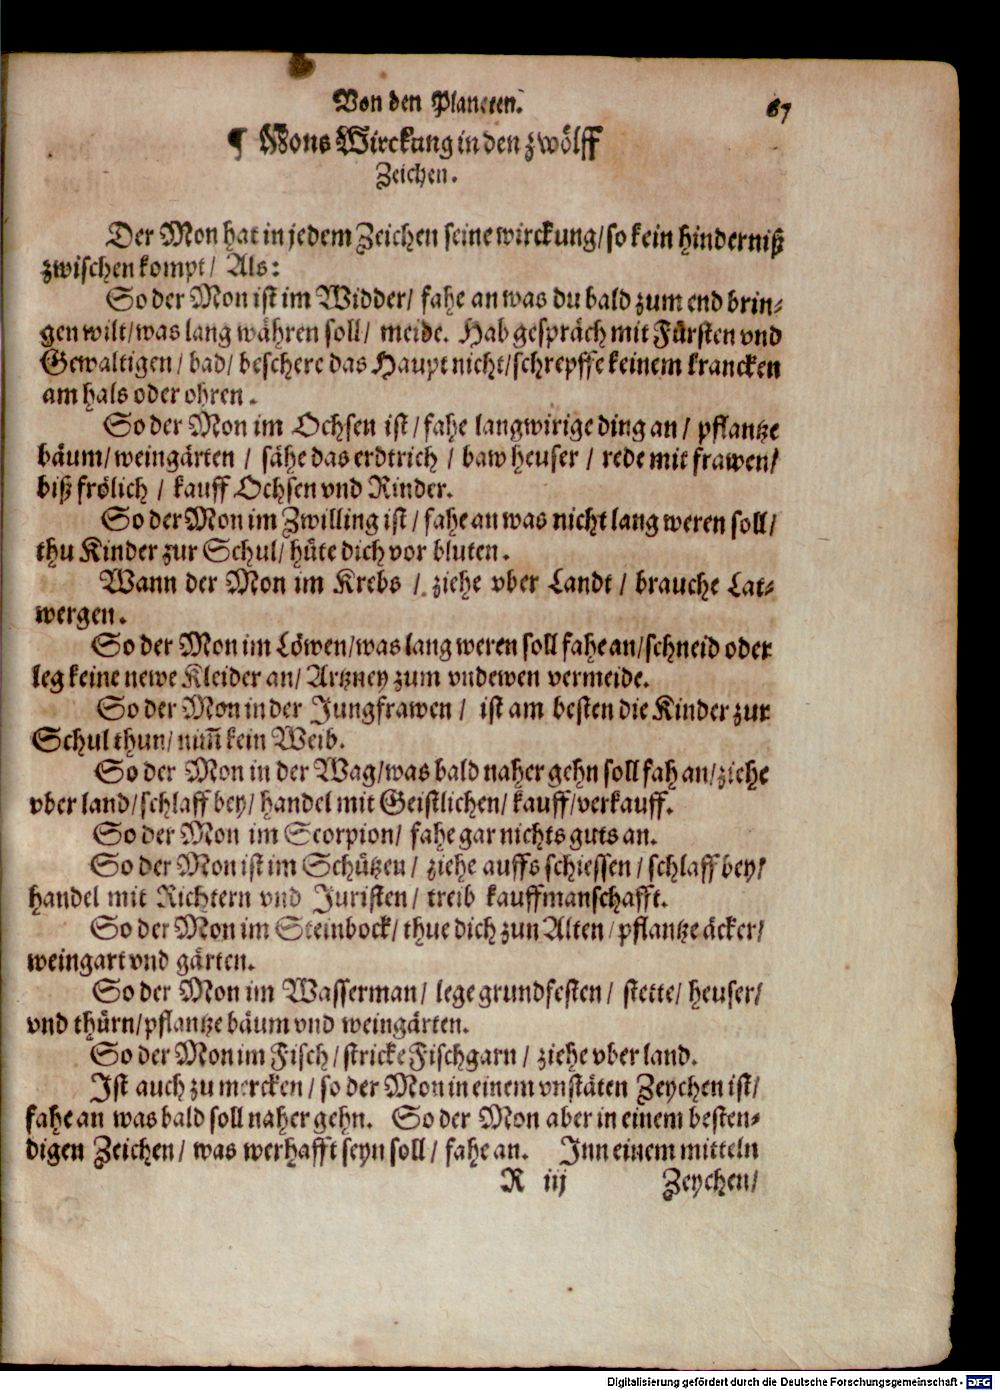 Von den Planeten.
67
¶ Mons Wirckung in den zwölff
Zeichen.
Der Mon hat in jedem Zeichen seine wirckung/ so kein hinderniß
zwischen kompt/ Als:
So der Mon ist im Widder/ fahe an was du bald zum end brin-
gen wilt/ was lang währen soll/ meide. Hab gespräch mit Fürsten vnd
Gewaltigen/ bad/ beschere das Haupt nicht/ schrepffe keinem krancken
am hals oder ohren.
So der Mon im Ochsen ist/ fahe langwirige ding an/ pflantze
bäum/ weingärten/ sähe das erdtrich/ baw heuser/ rede mit frawen/
biß frölich/ kauff Ochsen vnd Rinder.
So der Mon im Zwilling ist/ fahe an was nicht lang weren soll/
thu Kinder zur Schul/ hüte dich vor bluten.
Wann der Mon im Krebs/ ziehe vber Landt/ brauche Lat-
wergen.
So der Mon im Löwen/ was lang weren soll fahe an/ schneid oder
leg keine newe Kleider an/ Artzney zum vndewen vermeide.
So der Mon in der Jungfrawen/ ist am besten die Kinder zur
Schul thun/ nim̄ kein Weib.
So der Mon in der Wag/ was bald naher gehn soll fah an/ ziehe
vber land/ schlaff bey/ handel mit Geistlichen/ kauff/ verkauff.
So der Mon im Scorpion/ fahe gar nichts guts an.
So der Mon ist im Schützen/ ziehe auffs schiessen/ schlaff bey/
handel mit Richtern vnd Juristen/ treib kauffmanschafft.
So der Mon im Steinbock/ thue dich zun Alten/ pflantze äcker/
weingart vnd gärten.
So der Mon im Wasserman/ lege grundfesten/ stette/ heuser/
vnd thürn/ pflantze bäum vnd weingärten.
So der Mon im Fisch/ stricke Fischgarn/ ziehe vber land.
Ist auch zu mercken/ so der Mon in einem vnstäten Zeychen ist/
fahe an was bald soll naher gehn. So der Mon aber in einem besten-
digen Zeichen/ was werhafft seyn soll/ fahe an. Inn einem mitteln
R iij Zeychen/
Digitalisierung gefördert durch die Deutsche Forschungsgemeinschaft - DFG